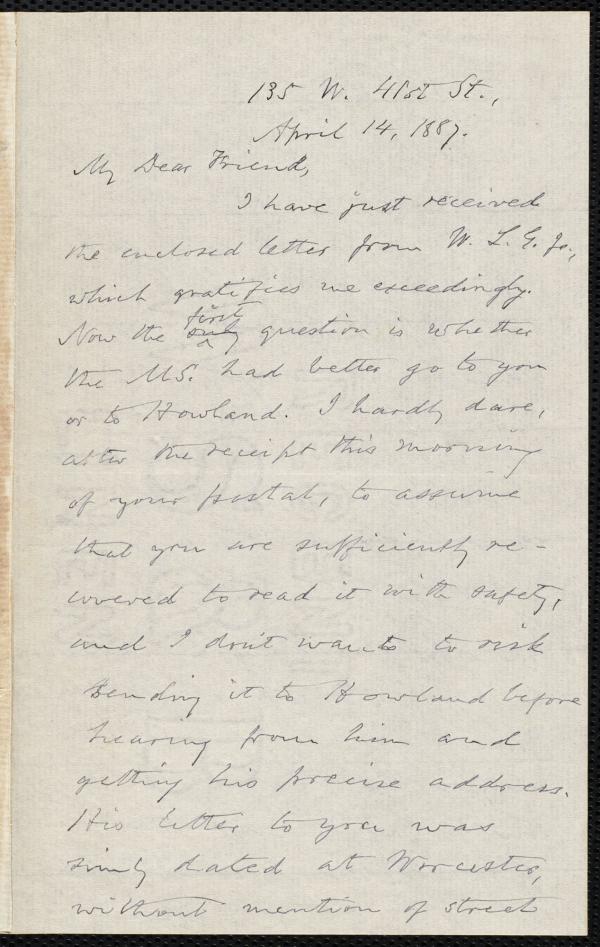 135 W. 41st St.,
April 14, 1887.
My Dear Friend,
I have just received
the enclosed letter from W. L. G. Jr.,
which gratifies me exceedingly.
first
Now the only question is whether
the MS. had better go to you
or to Howland. I hardly dare,
after the receipt this morning
of your postal, to assume
that you are sufficiently re-
covered to read it with safety,
and I don't want to risk
sending it to Howland before
hearing from him and
getting his precise address.
His letter to you was
simply dated at Worcester,
without mention of street